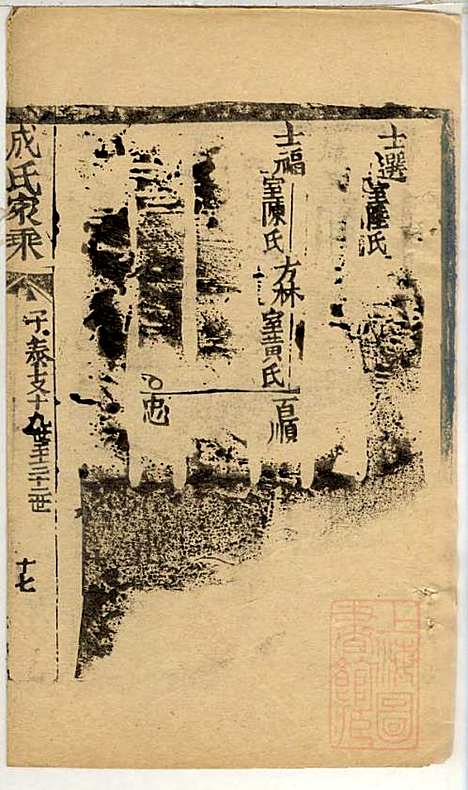 士選室陸氏
士福室陳氏
方林室黃氏
百順
百忠
成氏家乘
子泰支十九世至二十三世
十七
上海圖書館藏